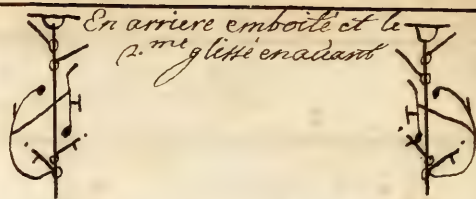 En arriere emboité et le
2.me glissé enavant